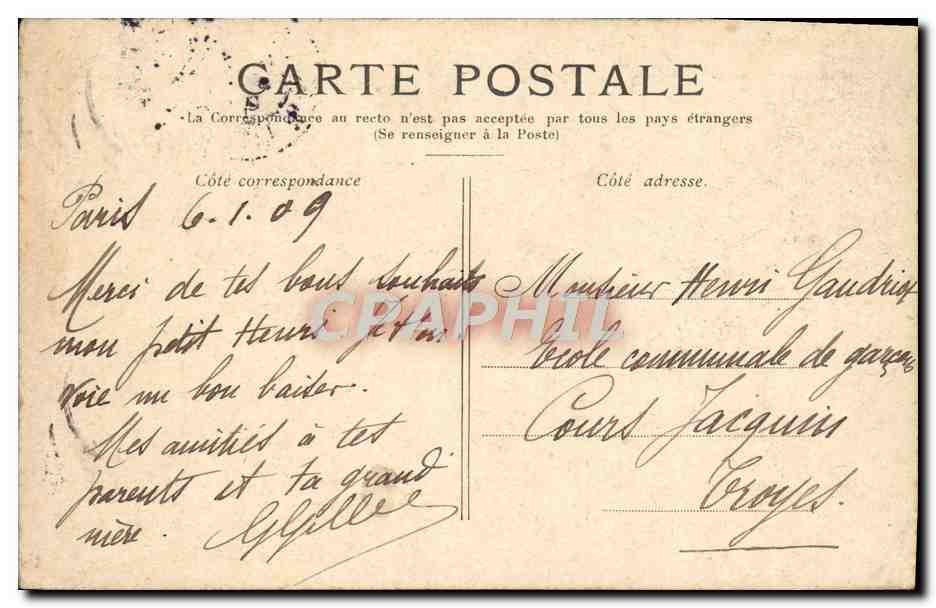 CARTE POSTALE
La Correspondance au recto n'est pas acceptée par tous les pays étrangers
(Se renseigner à la Poste)
Côté correspondance
Paris 6.1.09
Merci de tes bons souhaits
mon petit Henri Je t'en
voie un bon baiser.
Mes amitiés à tes
parents et ta grand'
mère.
Côté adresse.
Monsieur Henri Gaudriot
Ecole communale de garçons
Cours Jacquin
Troyes.
CPAPHIL